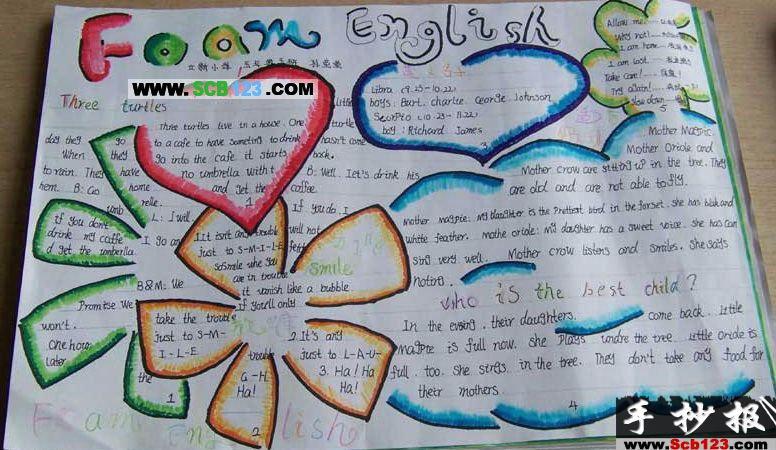 Foam English
www.SCB123.com
Three turtles
little
Three turtles live in a house. One turtle
day they go to a cafe to have someting to drink hasn't come
When they go into the cafe it starts back.
to rain. They have no umbrella with t B: Well. Let's drink his
hem. B: Go home and get the coffee.
umb relle.
1
L: I will
If you do. I
will not
If you dont
drink my caffe
d get the umberlla.
I go an
B&M: We
Promise We
won't.
One hour
later
the
1
1It isnt any trouble
just to S-M-I-L-E
So Smile whe you
are in trouble
it vanish like a bubble.
If you'll only
smile
take the trouble
just to S-M-
I-L-E
2.It's any
trouble
just to L-A-U-
G-H
3. Ha! Ha
Ha!
Ha!
2
Libra (9.23-10.22)
boys: Burt. charlie. George. Johnson
Scorpio (10.23-11.22)
boy: Richard James
3
Allow me.
Why not!
I am home.
I am lost.
Take care!
Try again!
Slow down
5
Mother Magpie.
Mother Oriole and
Mother crow are sitting up in the tree. They
are old and are not able to fly.
Mother magpie: my daughter is the Prettest bird in the forset. she has blak and
white feather. mothe oriole: My daughter has a sweet voice. she has can
sing very well. Mother crow listens and smiles. She says
noting.
who is the best child?
In the evsing. their daughters. come back. Little
magpie is full now. she Plays undre the tree. Little Oriole is
full. too. She strgs. in the tree. They don't take any food for
their mothers.
4
Foam English
手抄报
www.Scb123.com